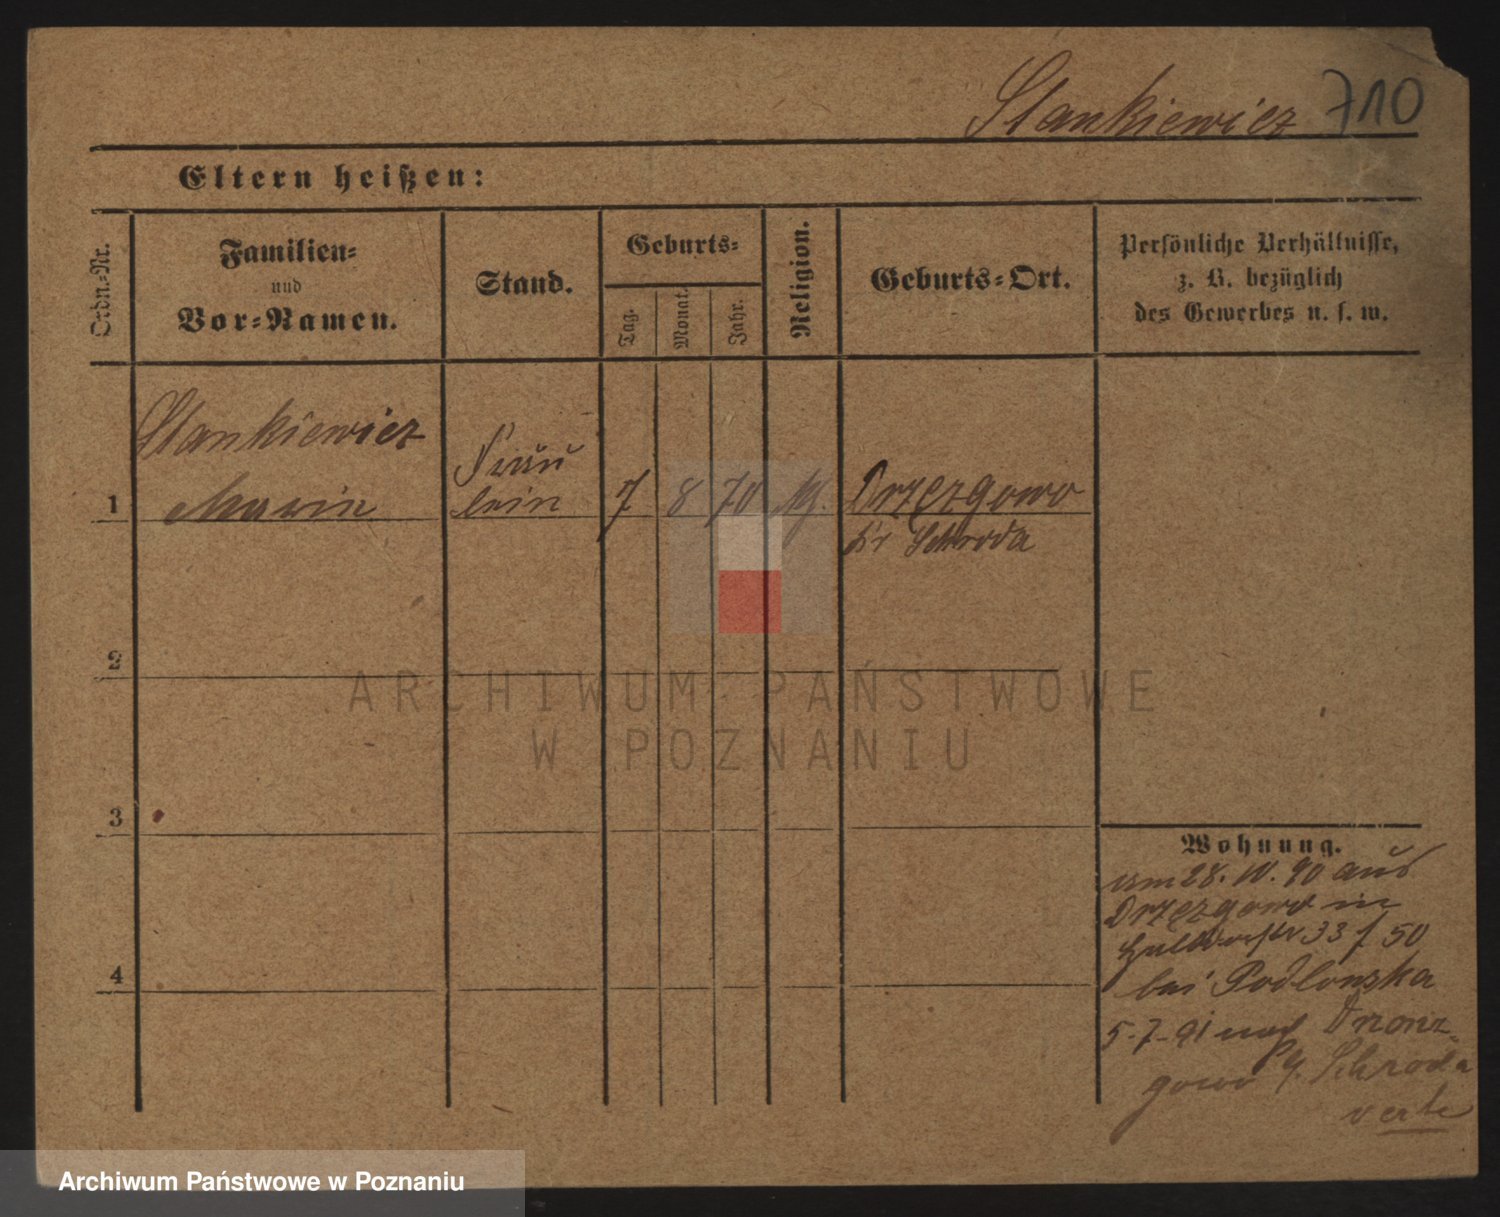 Stankiewicz 710
Eltern heißen:
Ordn.-Nr.
Familien-
und
Vor-Namen.
Stand.
Geburts-
Tag.
Monat.
Jahr.
Religion.
Geburts-Ort.
Persönliche Verhältnisse,
z. B. bezüglich
des Gewerbes u. s. w.
Stankiewicz
Fräu
1 Marie lein 7 8 70 Drzązgowo
Schroda
2
3
4
Wohnung.
am 28. IV. 90 aus
Drzązgowo in
33 f 50
bei Podlonska
5-7-91 nach Dronz-
gowo Schroda
verte
ARCHIWUM PAŃSTWOWE
W POZNANIU
Archiwum Państwowe w Poznaniu